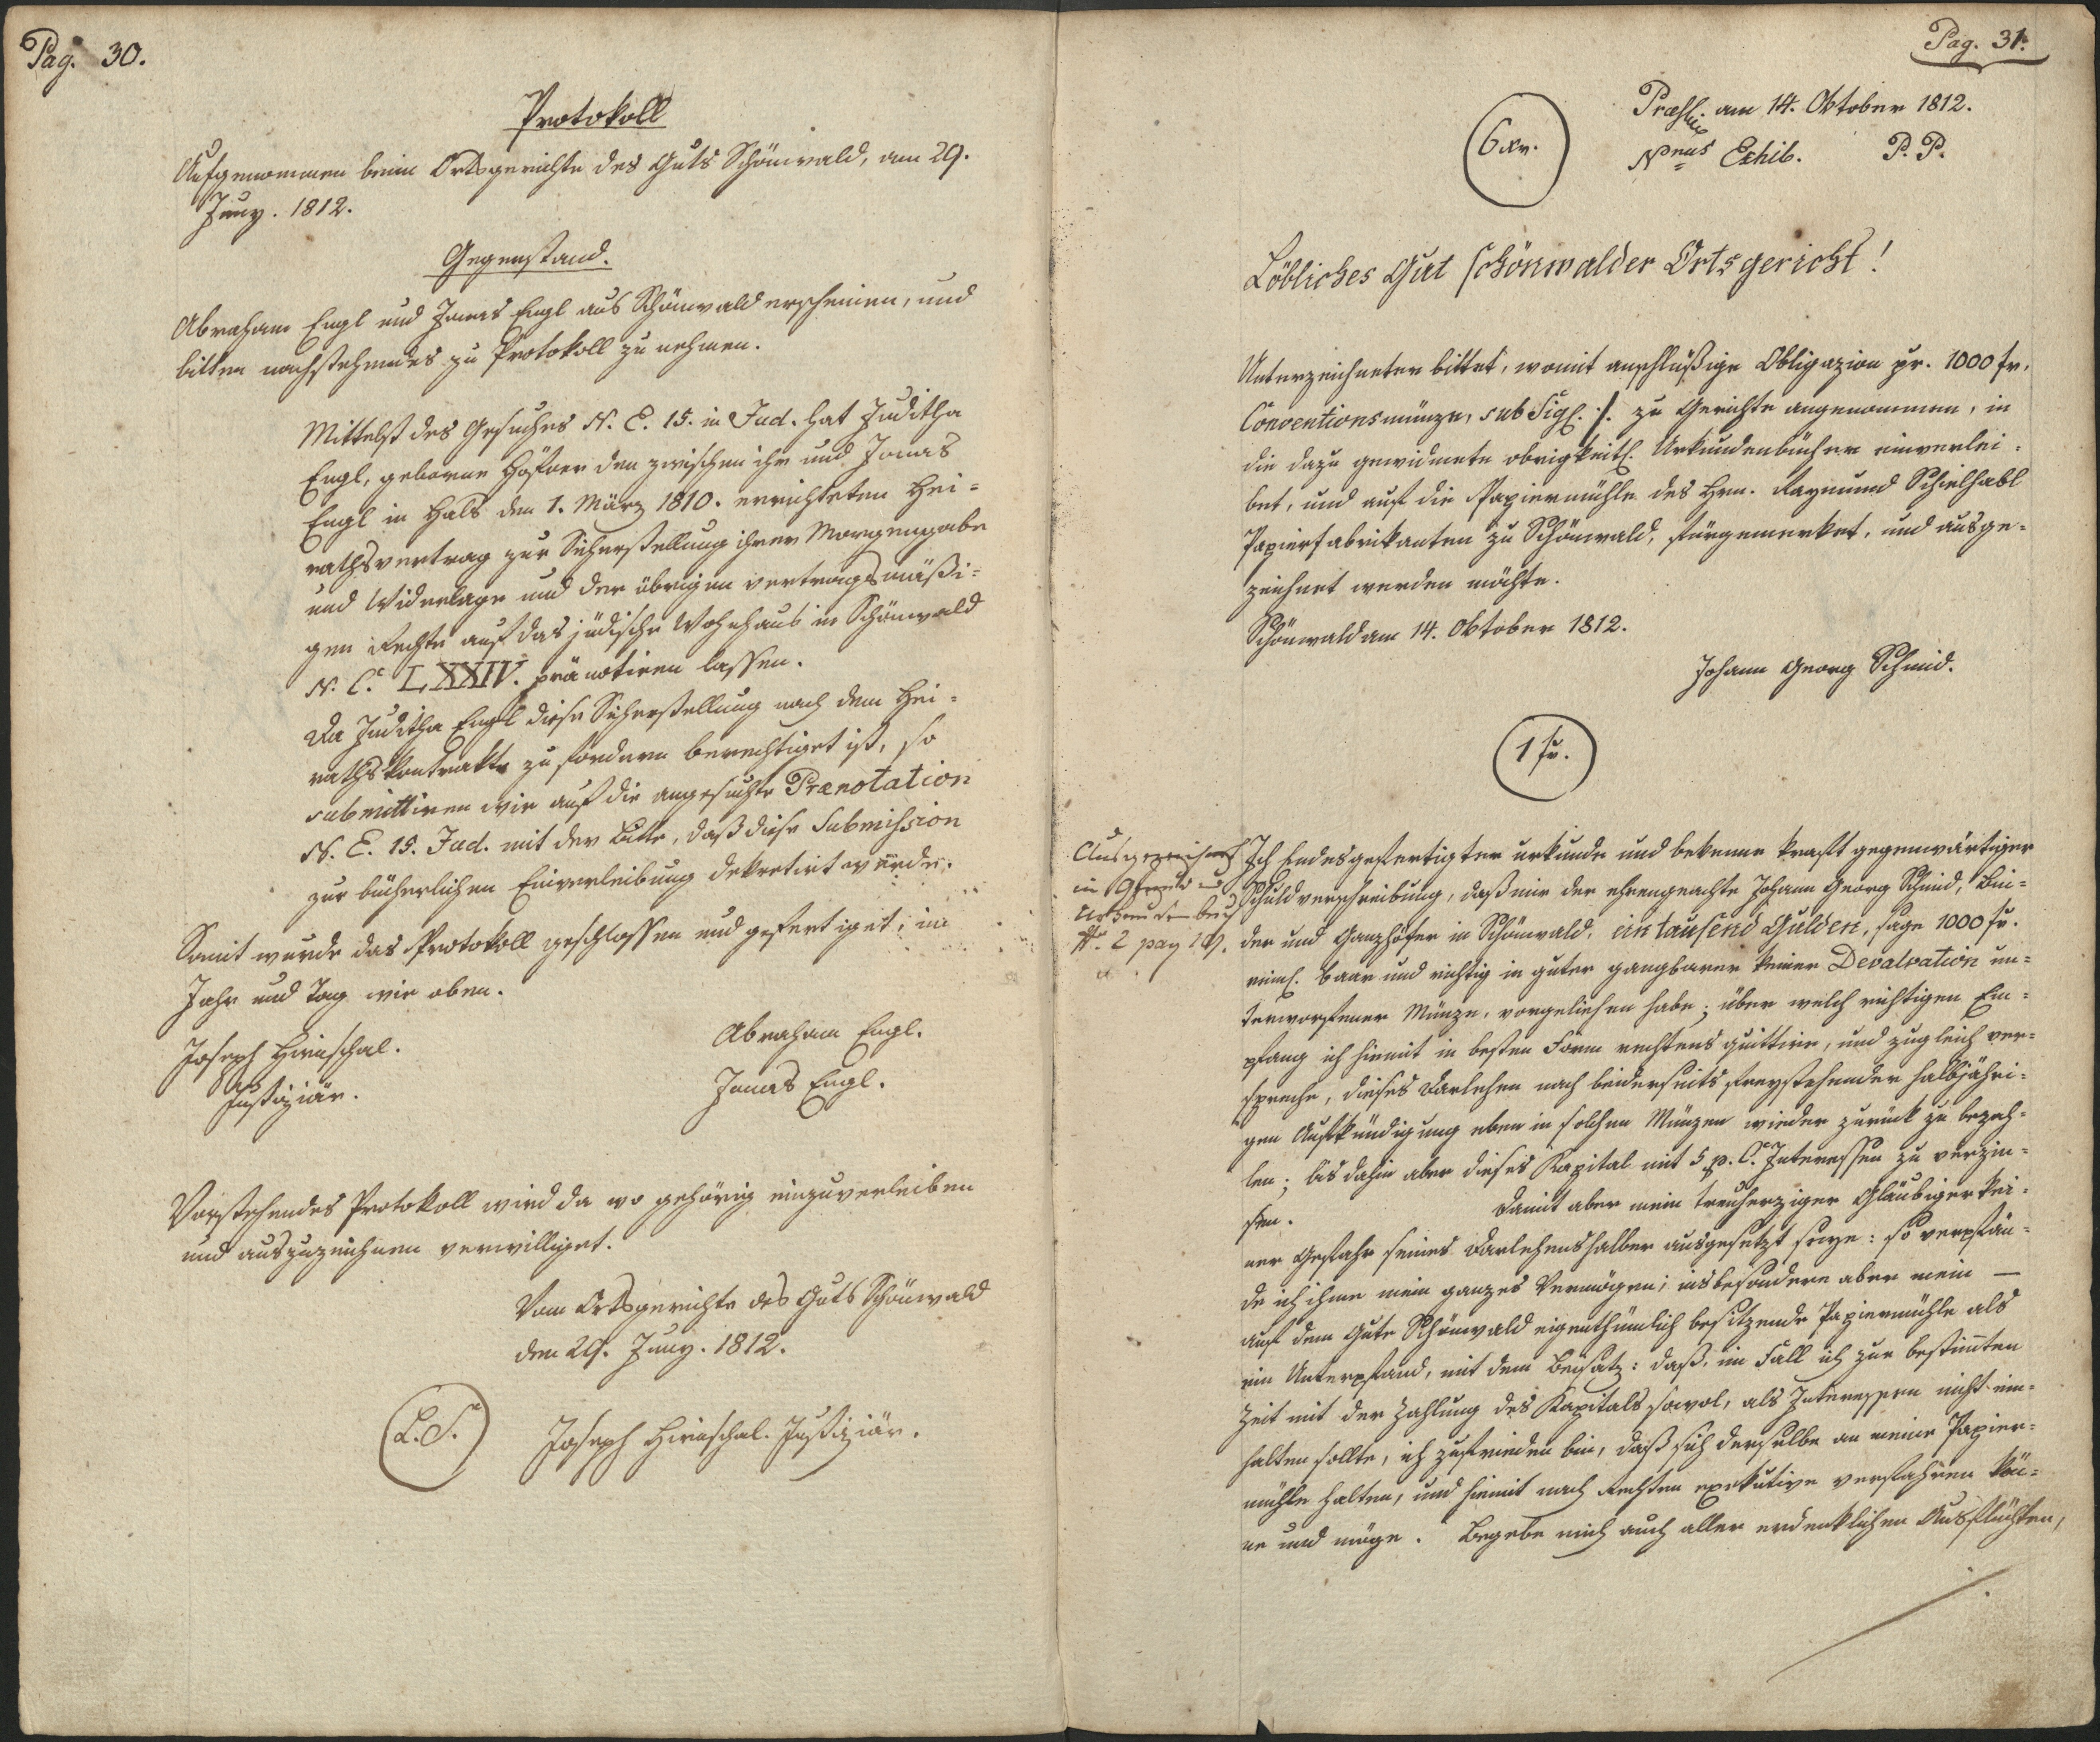 Pag. 30.
Protokoll
Aufgenommen beim Ortsgerichte des Guts Schönwald, am 29.
Juny. 1812.
Gegenstand.
Abraham Engl und Jonas Engl aus Schönwald erscheinen, und
bitten nachstehendes zu Protokoll zu nehmen.
Mittelst des Gesuches N. E. 15. in Jud. hat Juditha
Engl, geborne Höfner den zwischen ihr und Jonas
Engl in Hals den 1. März 1810. errichteten Hei=
rathsvertrag zur Sicherstellung ihrer Morgengabe
und Widerlage und der übrigen vertragsmäßi=
gen Rechte auf das jüdische Wohnhaus in Schönwald
N. C. LXXIV. pränotiren lassen.
Da Juditha Engl diese Sicherstellung nach dem Hei=
rathskontrakte zu fordern berechtiget ist, so
submittiren wir auf die angesuchte Prænotation
N. E. 15. Jud. mit der Bitte, daß diese Submission
zur bücherlichen Einverleibung dekretirt würde.
Somit wurde das Protokoll geschlossen und gefertiget, im
Jahr und Tag wie oben.
Joseph Hirnschal.
Justiziär.
Abraham Engl.
Jonas Engl.
Vorstehendes Protokoll wird da wo gehörig einzuverleiben
und auszuzeichnen verwilliget.
Vom Ortsgerichte des Guts Schönwald
den 29. Juny. 1812.
L. S.
Joseph Hirnschal. Justiziär.
Pag. 31.
6 xr.
am 14. Oktober 1812.
Nrus Exhib. P. P.
Löbliches Gut Schönwalder Ortsgericht!
Unterzeichneter bittet, womit anschlüßige Obligazion pr. 1000 fr.
Conventionsmünze, sub Sig. ·/. zu Gerichte angenommen, in
die dazu gewidmete obrigkeitl. Urkundenbücher einverlei=
bet, und auf die Papiermühle des Hrn. Raymund Schielhabl
Papierfabrikanten zu Schönwald, fürgemerket, und ausge=
zeichnet werden möchte.
Schönwald am 14. Oktober 1812.
Johann Georg Schmid.
1 fr.
Ausgezeichnet
in Grund u
Urkundenbuch
N. 2 pag
Ich Endesgefertigter urkunde und bekenne kraft gegenwärtiger
Schuldverschreibung, daß mir der ehrengeachte Johann Georg Schmid, Bin=
der und Ganzhöfer in Schönwald, ein tausend Gulden, sage 1000 fr.
rein. baar und richtig in guter gangbarer keiner Devalvation un=
terworfener Münze, vorgeliehen habe; über welch richtigen Em=
pfang ich hiemit in besten Form rechtens quittire, und zugleich ver=
spreche, dieses Darlehen nach beiderseits freystehender halbjähri=
gen Aufkündigung eben in solchen Münzen wieder zurück zu bezah=
len; bis dahin aber dieses Kapital mit 5 p. C. Interessen zu verzin=
sen. Damit aber mein treuherziger Gläubiger kei=
ner Gefahr seines Darlehens halber ausgesetzt seye: so verpfän=
de ich ihme mein ganzes Vermögen; insbesondere aber mein —
auf dem Gute Schönwald eigenthümlich besitzende Papiermühle als
ein Unterpfand, mit dem Beysatz: daß, im Fall ich zur bestimten
Zeit mit der Zahlung des Kapitals sowol, als Interessen nicht ein=
halten sollte, ich zufrieden bin, daß sich derselbe an meine Papier=
mühle halten, und hiemit nach Rechten exekutive verfahren kön=
ne und möge. Begebe mich auch aller erdenklichen Ausflüchten,
·/.